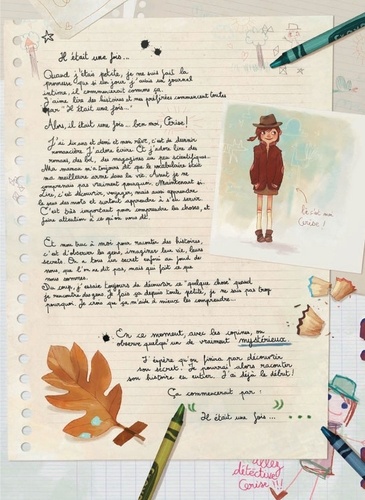 Il était une fois...
Quand j'étais petite, je me suis fait la
promesse que si un jour j'avais un journal
intime, il commencerait comme ça.
J'aime lire des histoires et mes préférées commencent toutes
par "Il était une fois..."
Alors, il était une fois... ben moi, Cerise!
J'ai dix ans et demi et mon rêve, c'est de devenir
romancière. J'adore écrire. Et j'adore lire des
romans, des bd, des magazines un peu scientifiques...
Ma maman m'a toujours dit que le vocabulaire était
ma meilleure arme dans la vie. Avant je ne
comprenais pas vraiment pourquoi. Maintenant si.
Lire, c'est découvrir, voyager, mais aussi apprendre
le sens des mots et surtout apprendre à s'en servir.
C'est très important pour comprendre les choses, et
faire attention à ce qu'on vous dit!
Et mon truc à moi pour raconter des histoires,
c'est d'observer les gens, imaginer leur vie, leurs
secrets. On a tous un secret enfoui au fond de
nous, que l'on ne dit pas, mais qui fait ce que
nous sommes.
Du coup, j'essaie toujours de découvrir ce "quelque chose" quand
je rencontre des gens. Je fais ça depuis toute petite, je ne sais pas trop
pourquoi. Je crois que ça m'aide à mieux les comprendre...
Là c'est moi
Cerise!
En ce moment, avec les copines, on
observe quelqu'un de vraiment mystérieux.
J'espère qu'on finira par découvrir
son secret. Je pourrai alors raconter
son histoire en entier. J'ai déjà le début!
Ça commencerait par :
"Il était une fois ... "
Allez
détective
Cerise!!!